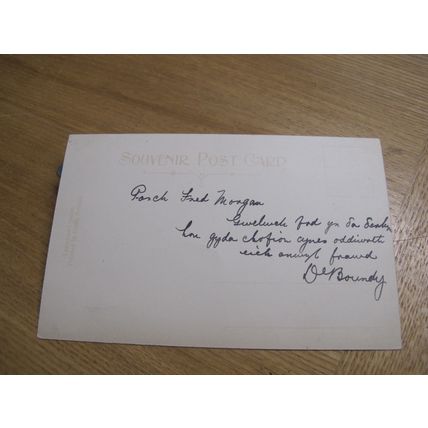 SOUVENIR POST CARD
Parch Fred Morgan
Gwelwch fod yn dda derbyn
hon gyda chofion cynes oddiwrth
eich anwyl frawd
D Boundy